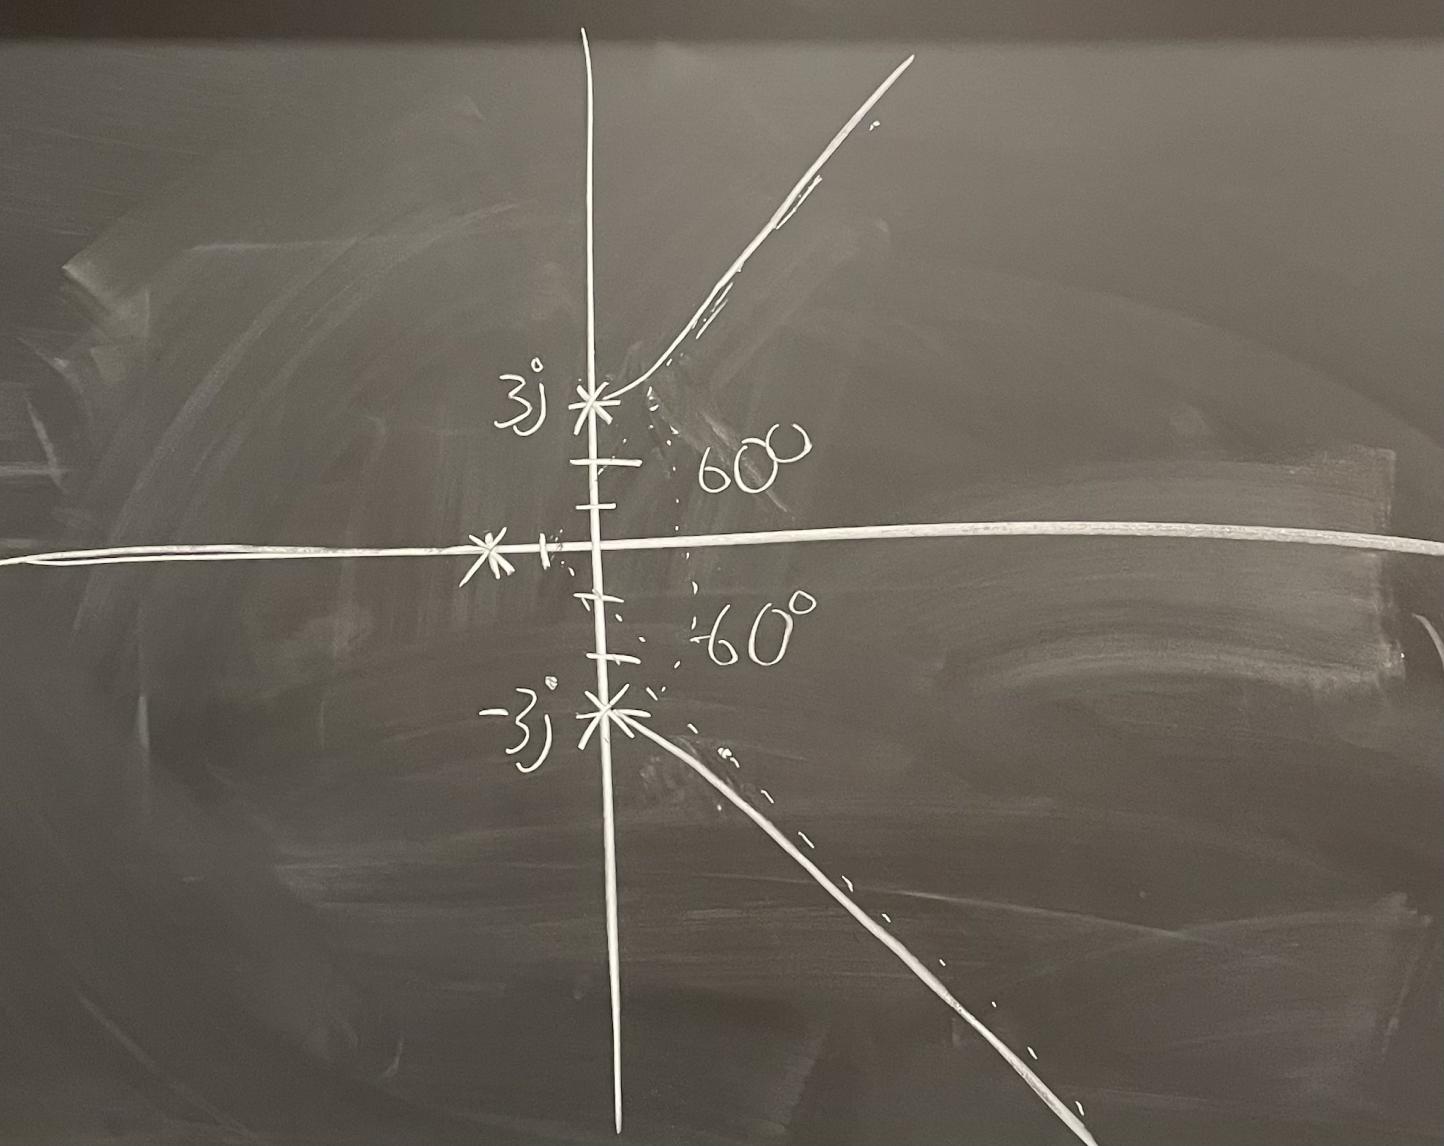 3j
60°
-60°
-3j